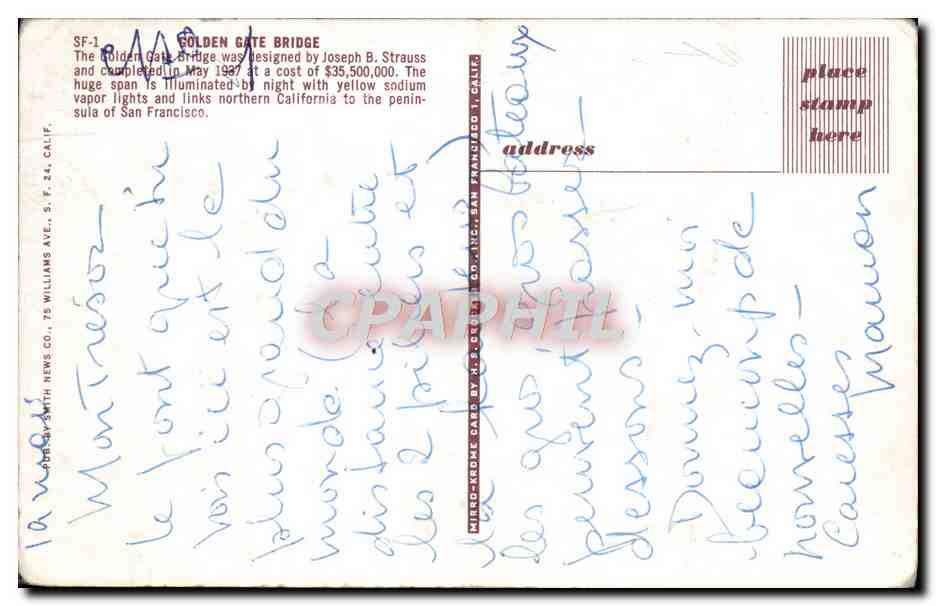 SF-1 GOLDEN GATE BRIDGE
The Golden Gate Bridge was designed by Joseph B. Strauss
and completed in May 1937 at a cost of $35,500,000. The
huge span is illuminated by night with yellow sodium
vapor lights and links northern California to the penin-
sula of San Francisco.
PUB. BY SMITH NEWS CO., 75 WILLIAMS AVE., S. F. 24, CALIF.
MIRRO-KROME CARD BY H. S. CROCKER CO., INC., SAN FRANCISCO 1, CALIF.
address
place
stamp
here
Mon Trésor
Le Pont que tu
vois ici est le
plus grand du
monde (la
distance entre
les 2 piliers et
la
les gros bateaux
peuvent passer
dessous -
Donnez-moi
beaucoup de
nouvelles -
Caresses
Maman
CPAPHIL